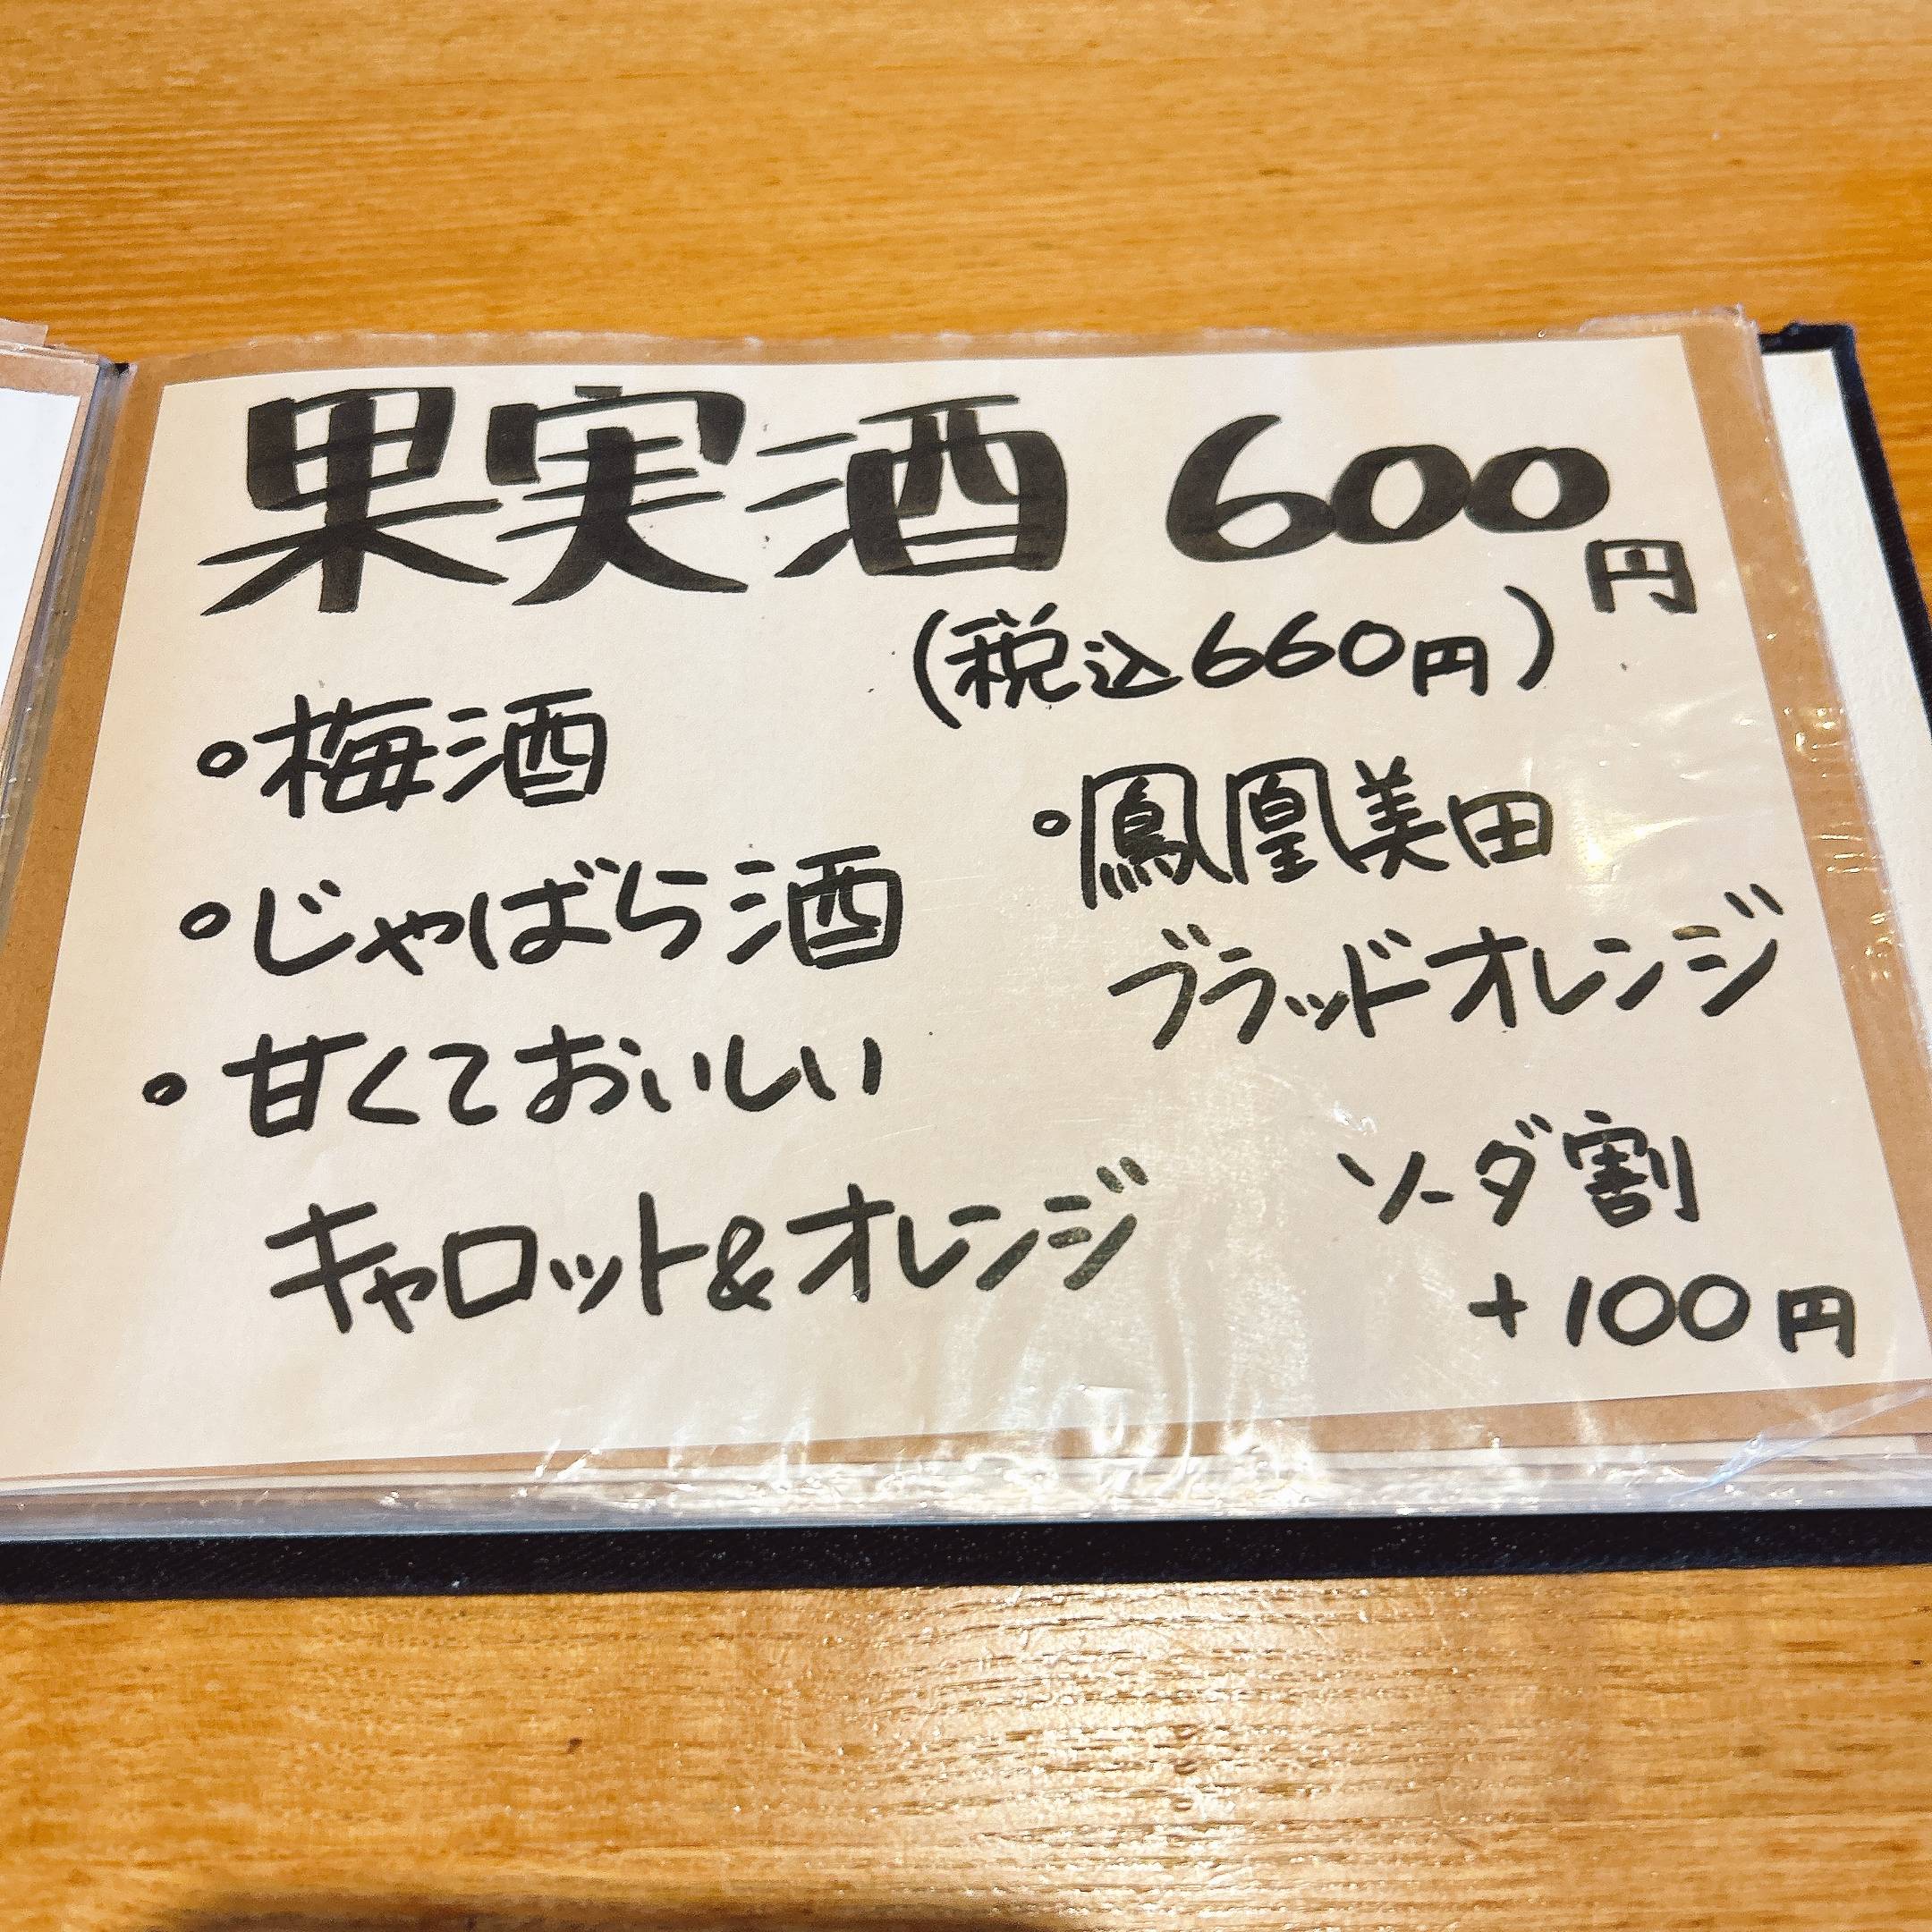 果実酒 600円
(税込660円)
・梅酒
・じゃばら酒
・甘くておいしい
キャロット&オレンジ
・鳳凰美田
ブラッドオレンジ
ソーダ割
+100円